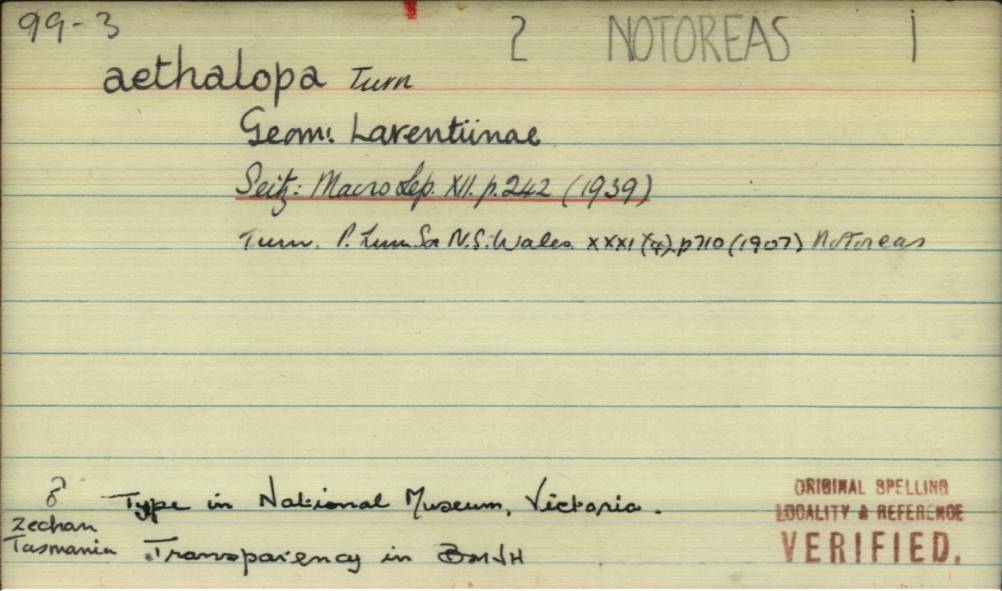 99-3
2 NOTOREAS 1
aethalopa Turn
Geom: Larentiinae
Seitz: Macro Lep. XII. p. 242 (1939)
Turn. P. Linn. So N.S. Wales. XXXI (4) p710 (1907) Notoreas
♂ Type in National Museum, Victoria.
Zechan
Tasmania Transparency in BMNH
ORIGINAL SPELLING
LOCALITY & REFERENCE
VERIFIED.